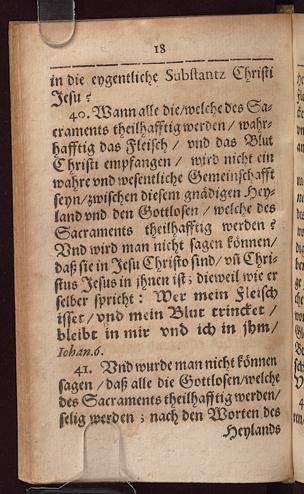 18
in die eygentliche Substantz Christi
Jesu?
40. Wann alle die/welche des Sa-
craments theilhafftig werden / wahr-
hafftig das Fleisch / vnd das Blut
Christi empfangen / wird nicht ein
wahre vnd wesentliche Gemeinschafft
seyn/zwischen diesem gnädigen Hey-
land vnd den Gottlosen / welche des
Sacraments theilhafftig werden?
Vnd wird man nicht sagen können/
daß sie in Jesu Christo sind/ vñ Chri-
stus Jesus in jhnen ist; dieweil wie er
selber spricht: Wer mein Fleisch
isset / vnd mein Blut trincket /
bleibt in mir vnd ich in jhm/
Iohan.6.
41. Vnd wurde man nicht können
sagen / daß alle die Gottlosen/welche
des Sacraments theilhafftig werden/
selig werden ; nach den Worten des
Heylands